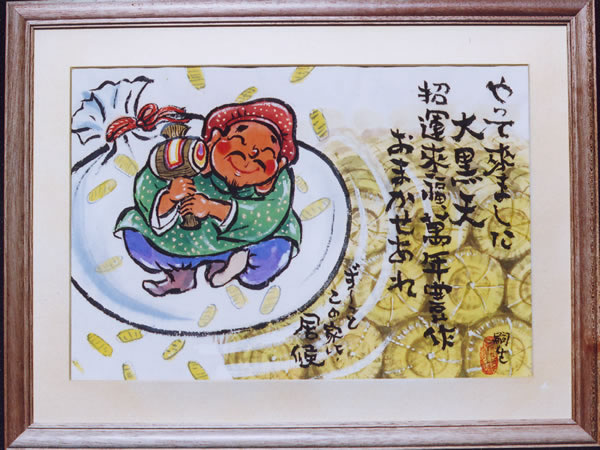 やって來ました
大黒天
招運來福、萬年豊作
おまかせあれ
ずーっと
この家に
居候